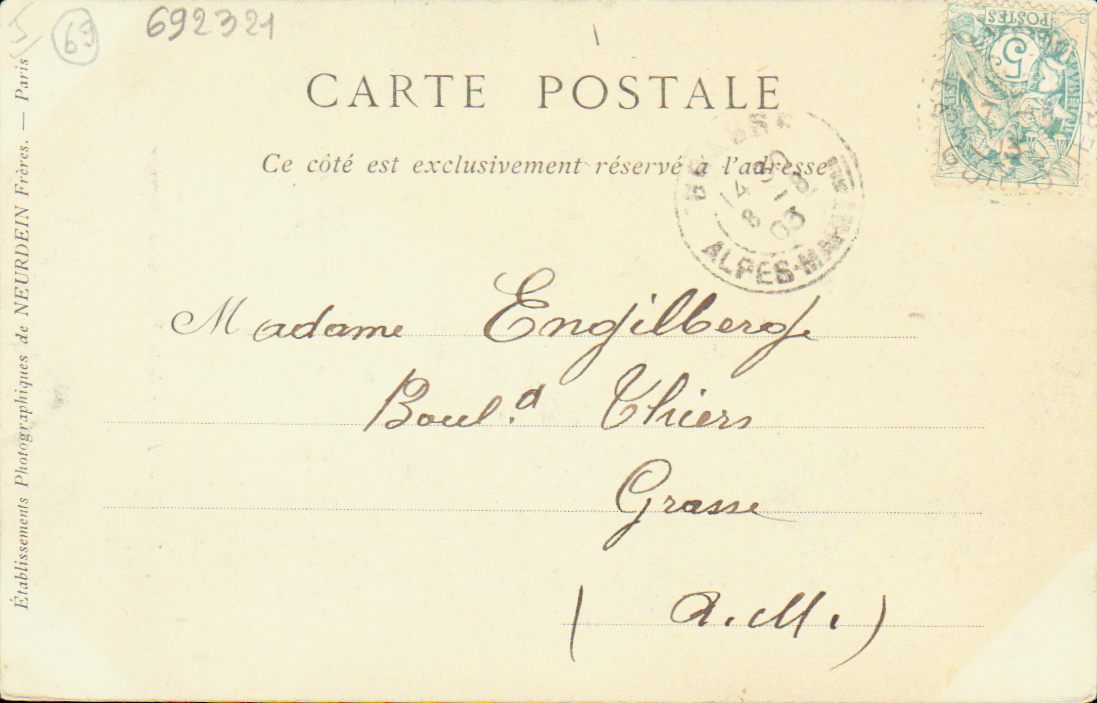 69
692321
CARTE POSTALE
Ce côté est exclusivement réservé à l'adresse
POSTES
5
14 8
8 03
ALPES-MARIT
Madame Engilberge
Boul.d Thiers
Grasse
(A.M.)
Établissements Photographiques de NEURDEIN Frères. — Paris